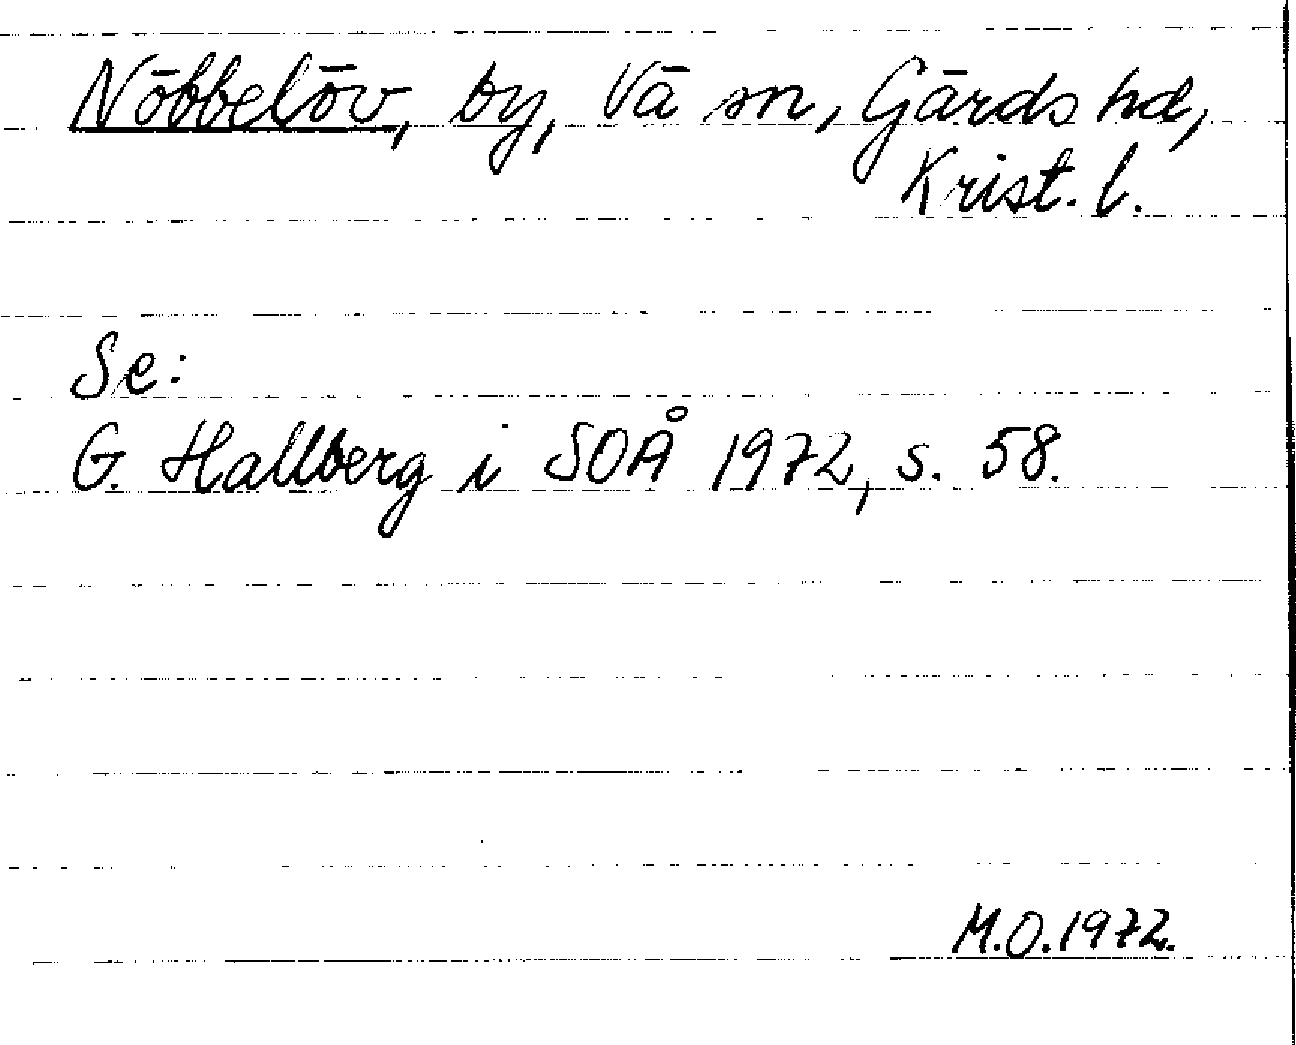 Nöbbelöv, by, Vä sn, Gärds hd,
Krist. l.
Se:
G. Hallberg i SOÅ 1972, s. 58.
M.O. 1972.